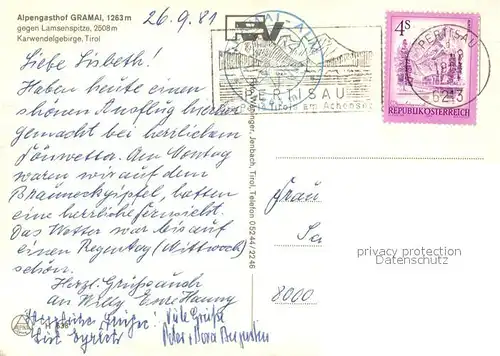 Alpengasthof GRAMAI, 1263 m
gegen Lamsenspitze, 2508 m
Karwendelgebirge, Tirol
26.9.81
PERTISAU
am Achensee
4 S
REPUBLIK ÖSTERREICH
PERTISAU
6213
Liebe Lisbeth!
Haben heute einen
schönen Ausflug hierher
gemacht bei herrlichem
Fönwetter. Am Montag
waren wir auf dem
Brauneckgipfel, hatten
eine herrliche Fernsicht.
Das Wetter war bis auf
einen Regentag (Mittwoch)
schön.
Herzl. Grüße auch
an Willy Eure Hanny
Herzliche Grüße!
Viele Grüße
Peter + Dora
Jenbach, Tirol, Telefon 05244/2246
Frau
8000
privacy protection
Datenschutz